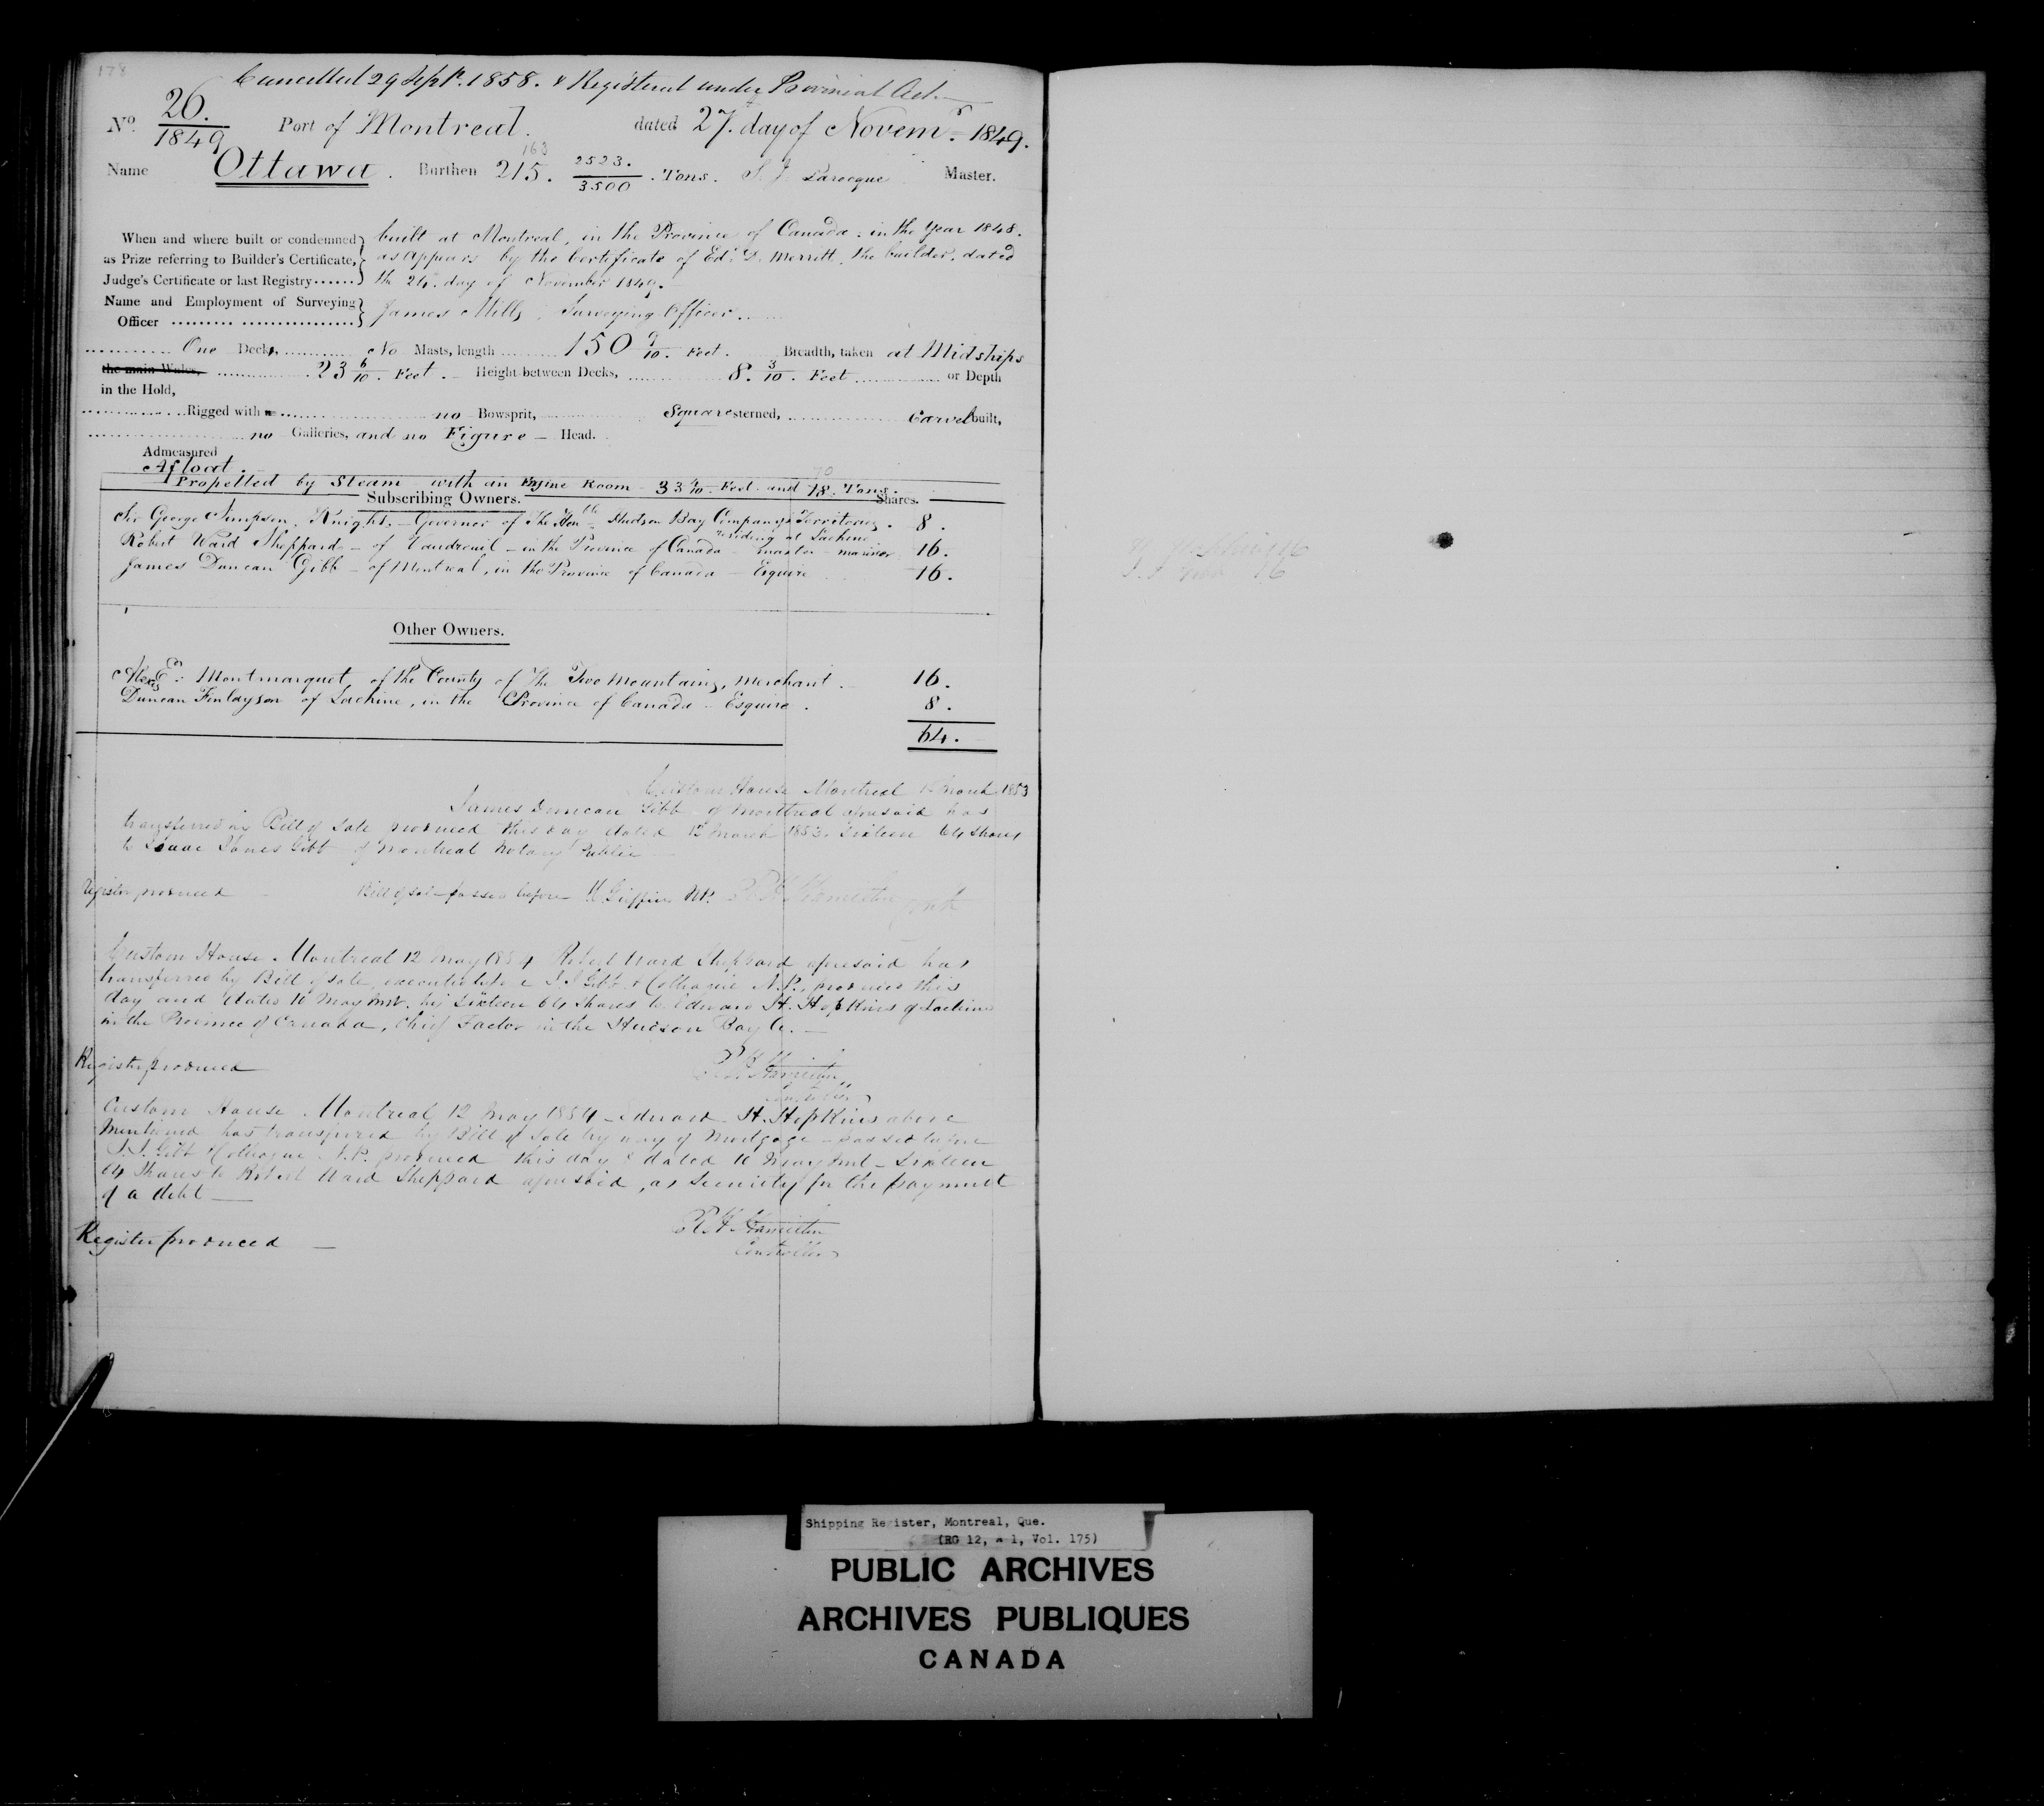 178
Cancelled 29 Sept. 1858. & Registered under Provincial Act
No. 26. 1849 Port of Montreal. dated 27. day of Novemr. 1849.
163
Name Ottawa. Burthen 215. 2523./3500. Tons. S. J. Larocque Master.
When and where built or condemned built at Montreal, in the Province of Canada: in the Year 1848.
as Prize referring to Builder's Certificate, as appears by the Certificate of Edd. D. Merritt, the builder, dated
Judge's Certificate or last Registry the 24. day of November 1849.
Name and Employment of Surveying
Officer James Mills, Surveying Officer
One Deck, No Masts, length 150 9/10. Feet. Breadth, taken at Midships
the main Wales, 23 6/10. Feet. Height between Decks, 8. 3/10. Feet or Depth
in the Hold,
Rigged with no Bowsprit, Square sterned, Carvel built,
no Galleries, and no Figure Head.
Admeasured
Afloat.
70
Propelled by Steam with an Engine Room 33 4/10. Feet and 78. Tons.
Subscribing Owners. Shares.
Sir George Simpson, Knight, Governor of The Honble Hudson Bay Company's Territories. 8.
residing at Lachine
Robert Ward Sheppard of Vaudreuil in the Province of Canada master mariner 16.
James Duncan Gibb of Montreal, in the Province of Canada Esquire 16.
Other Owners.
Montmarquet, of the County of The Two Mountains, Merchant 16.
Duncan Finlayson of Lachine, in the Province of Canada Esquire. 8.
64.
Custom House Montreal March 1853
James Duncan Gibb of Montreal aforesaid has
transferred by Bill of Sale produced this day dated 12 March 1853. Sixteen 64 Shares
to Isaac Jones Gibb of Montreal Notary Public
Register produced Bill of Sale passed before Griffin NP.
Custom House. Montreal 12 May 1854 Robert Ward Sheppard aforesaid has
transferred by Bill of Sale, executed before I. J. Gibb & Colleague N.P., produced this
day and dated 10 May Inst. his Sixteen 64 Shares to Edward H. Hopkins of Lachine
in the Province of Canada, Chief Factor in the Hudson Bay Co.
Register produced
Custom House. Montreal 12 May 1854 Edward H. Hopkins above
mentioned has transferred by Bill of Sale by way of Mortgage passed before
I. J. Gibb & Colleague N.P. produced this day & dated 10 May Inst Sixteen
64 Shares to Robert Ward Sheppard aforesaid, as security for the payment
of a debt
Register produced
Controller
Shipping Register, Montreal, Que.
(RG 12, A 1, Vol. 175)
PUBLIC ARCHIVES
ARCHIVES PUBLIQUES
CANADA